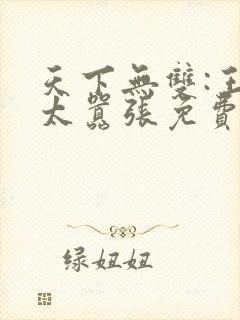 天下無雙:王
太囂張免費
绿妞妞